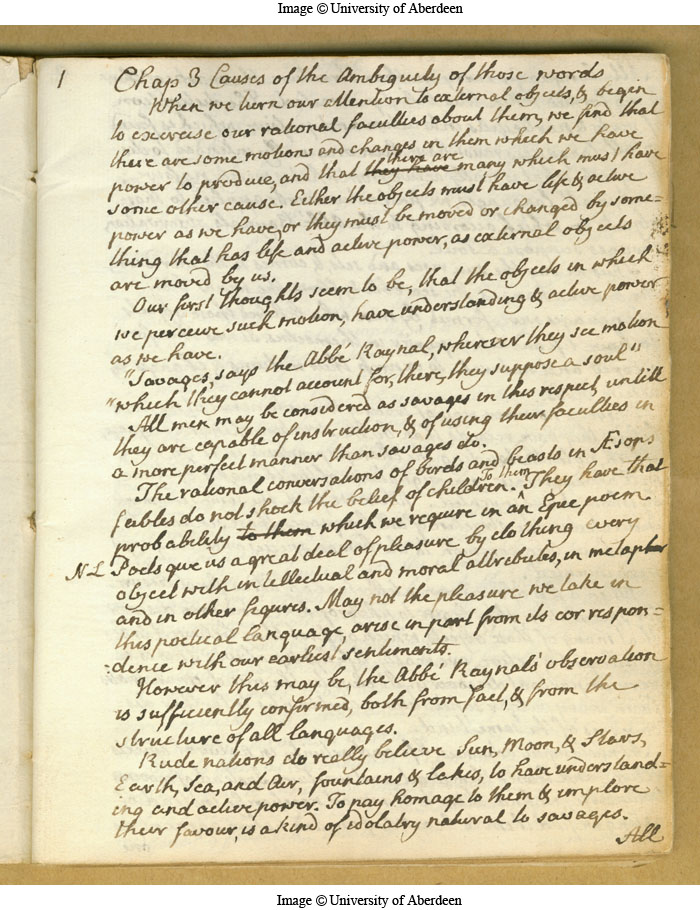 Image © University of Aberdeen
1
Chap 3 Causes of the Ambiguity of those words
When we turn our attention to external objects, & begin
to exercise our rational faculties about them, we find that
there are some motions and changes in them which we have
there are
power to produce, and that they have many which must have
some other cause. Either the objects must have life & active
power as we have, or they must be moved or changed by some=
thing that has life and active power, as external objects
are moved by us.
Our first thoughts seem to be, that the objects in which
we perceive such motion, have understanding & active power
as we have.
"Savages, says the Abbé Raynal, wherever they see motion
"which they cannot account for, there, they suppose a soul"
All men may be considered as savages in this respect, untill
they are capable of instruction, & of using their faculties in
a more perfect manner than savages do.
The rational conversations of birds and beasts in Æsops
To them
feables do not shock the belief of children. They have that
probability to them which we require in an Epic poem
NL Poets give us a great deal of pleasure by clothing every
object with intellectual and moral attributes, in metaphor
and in other figures. May not the pleasure we take in
this poetical language, arise in part from its correspon=
:dence with our earliest sentiments.
However this may be, the Abbé Raynals' observation
is sufficiently confirmed, both from fact, & from the
structure of all languages.
Rude nations do really believe Sun, Moon, & Stars,
Earth, Sea, and Air, fountains & lakes, to have understand=
ing and active power. To pay homage to them & implore
their favour, is a kind of idolatry natural to savages.
All
Image © University of Aberdeen